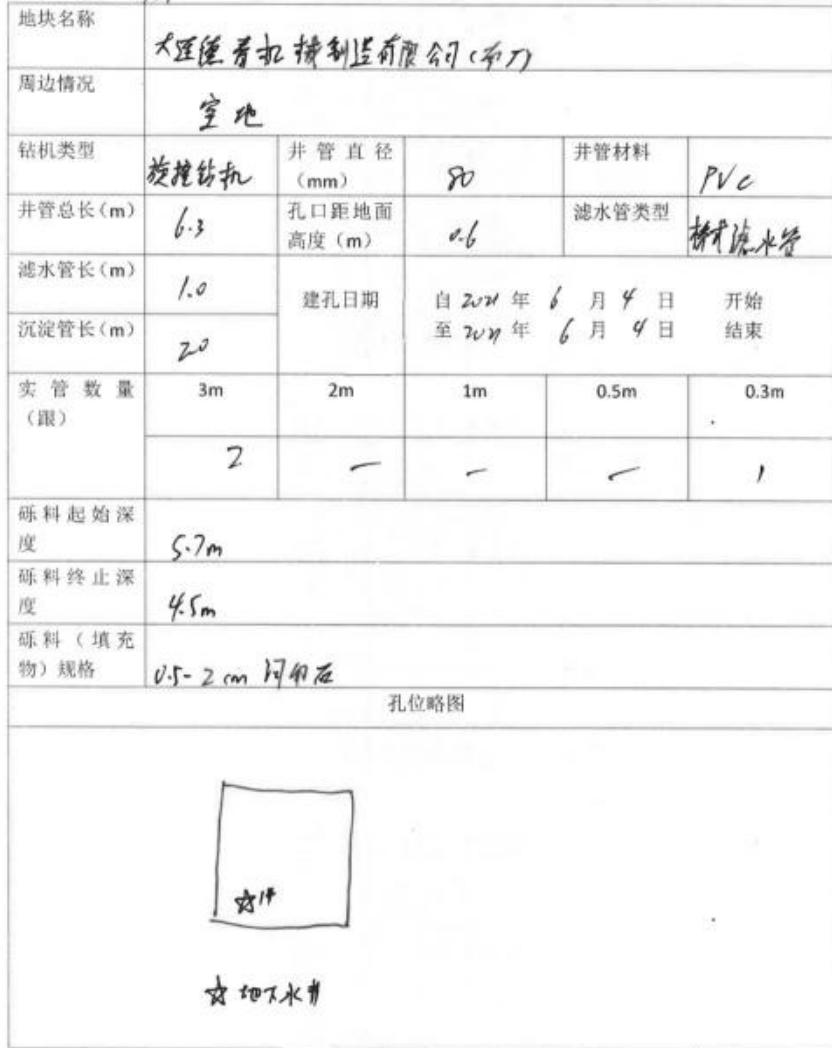 地块名称
大连德青机械制造有限公司(东厂)
周边情况
空地
钻机类型 旋挖钻机 井管直径(mm) 80 井管材料 PVC
井管总长(m) 6.3 孔口距地面高度(m) 0.6 滤水管类型 滤水管
滤水管长(m) 1.0
建孔日期 自 2021 年 6 月 4 日 开始
至 2021 年 6 月 4 日 结束
沉淀管长(m) 20
实管数量(跟) 3m 2m 1m 0.5m 0.3m
2 — — — 1
砾料起始深度 5.7m
砾料终止深度 4.5m
砾料(填充物)规格 0.5-2cm
孔位略图
☆1#
☆地下水井